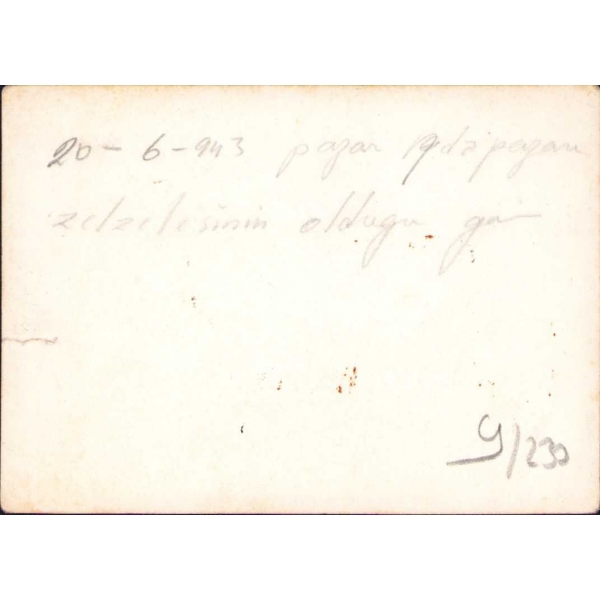 20-6-943 pazar Adapazarı
zelzelesinin olduğu gün
9/230